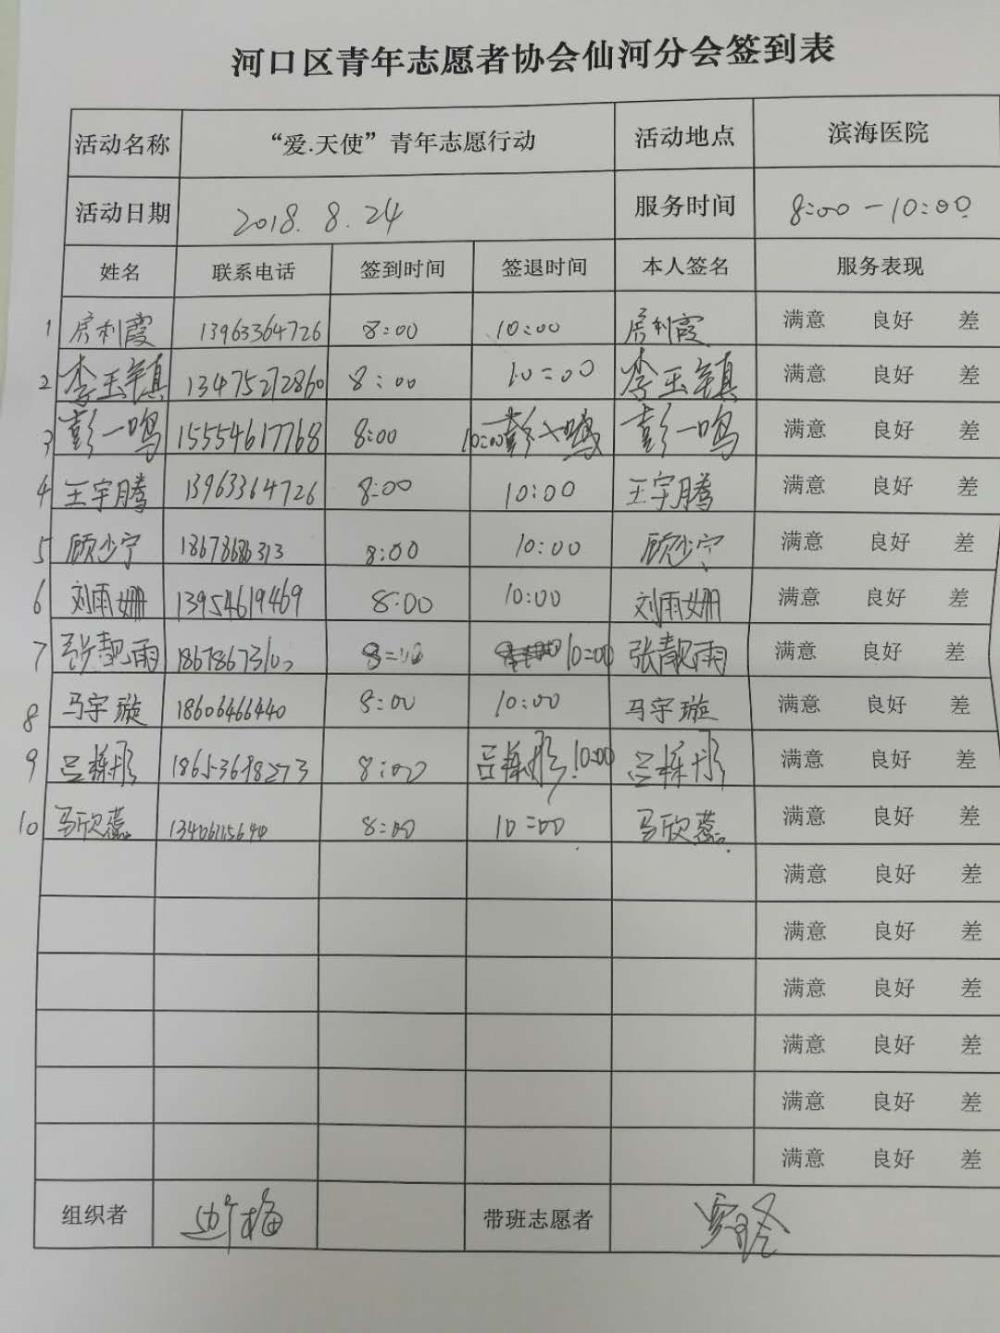 河口区青年志愿者协会仙河分会签到表
活动名称 “爱.天使”青年志愿行动 活动地点 滨海医院
活动日期 2018.8.24 服务时间 8:00-10:00
姓名 联系电话 签到时间 签退时间 本人签名 服务表现
1 房利霞 13963364726 8:00 10:00 房利霞 满意 良好 差
2 李玉镇 13475272860 8:00 10:00 李玉镇 满意 良好 差
3 彭一鸣 15554617768 8:00 10:00 彭一鸣 满意 良好 差
4 王宇腾 13963364726 8:00 10:00 王宇腾 满意 良好 差
5 顾少宁 18678686313 8:00 10:00 顾少宁 满意 良好 差
6 刘雨姗 13954619469 8:00 10:00 刘雨姗 满意 良好 差
7 张靓雨 8:00 10:00 张靓雨 满意 良好 差
8 马宇璇 18606466440 8:00 10:00 马宇璇 满意 良好 差
9 吕 彤 18653698273 8:00 吕 彤 10:00 吕 彤 满意 良好 差
10 马欣蕊 8:00 10:00 马欣蕊 满意 良好 差
满意 良好 差
满意 良好 差
满意 良好 差
满意 良好 差
满意 良好 差
满意 良好 差
组织者 带班志愿者